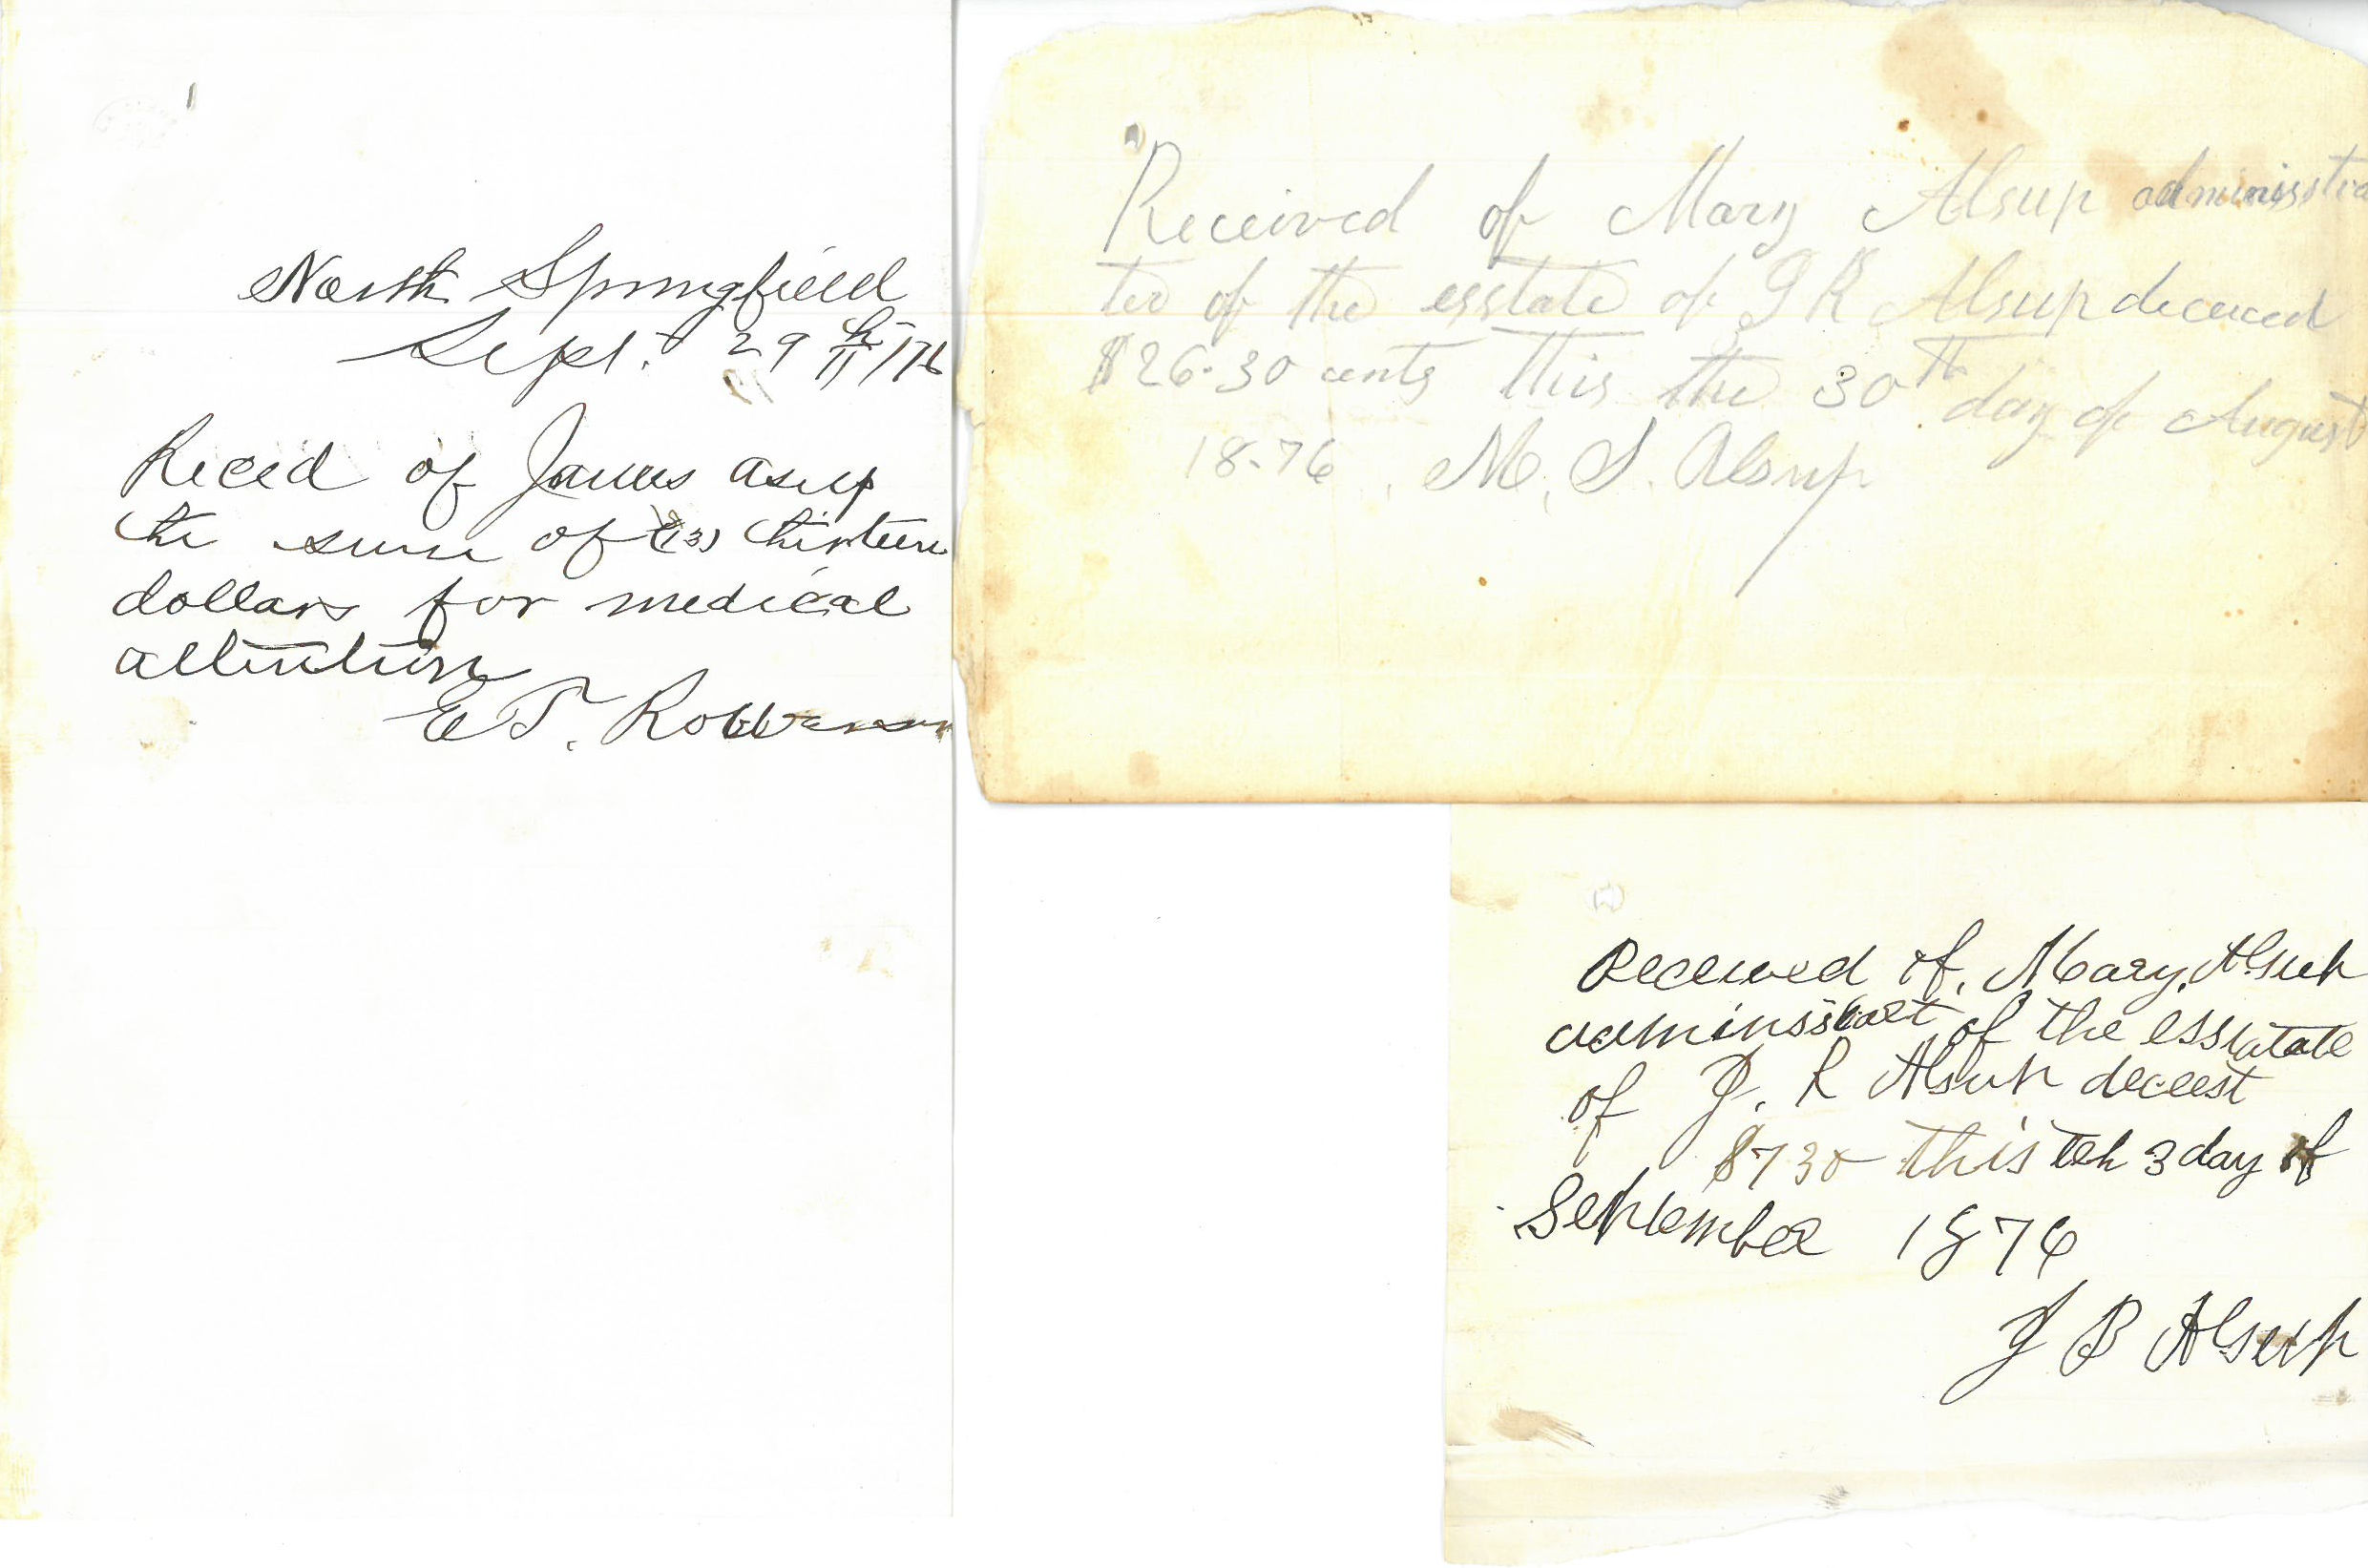 North Springfield
Sept. 29th /76
Reced of James Asup
the sum of (13) thirteen
dollars for medical
attention
E T. Robberson
Received of Mary Alsup administra
ter of the esstate of J R Alsup deceaced
$26.30 cents this the 30th day of August
18-76 M. S. Alsup
Received of, Mary, Alsup
adminsstart of the esstatate
of J. R Alsup deceest
$730 this teh 3 day of
September 1876
J B Alsup